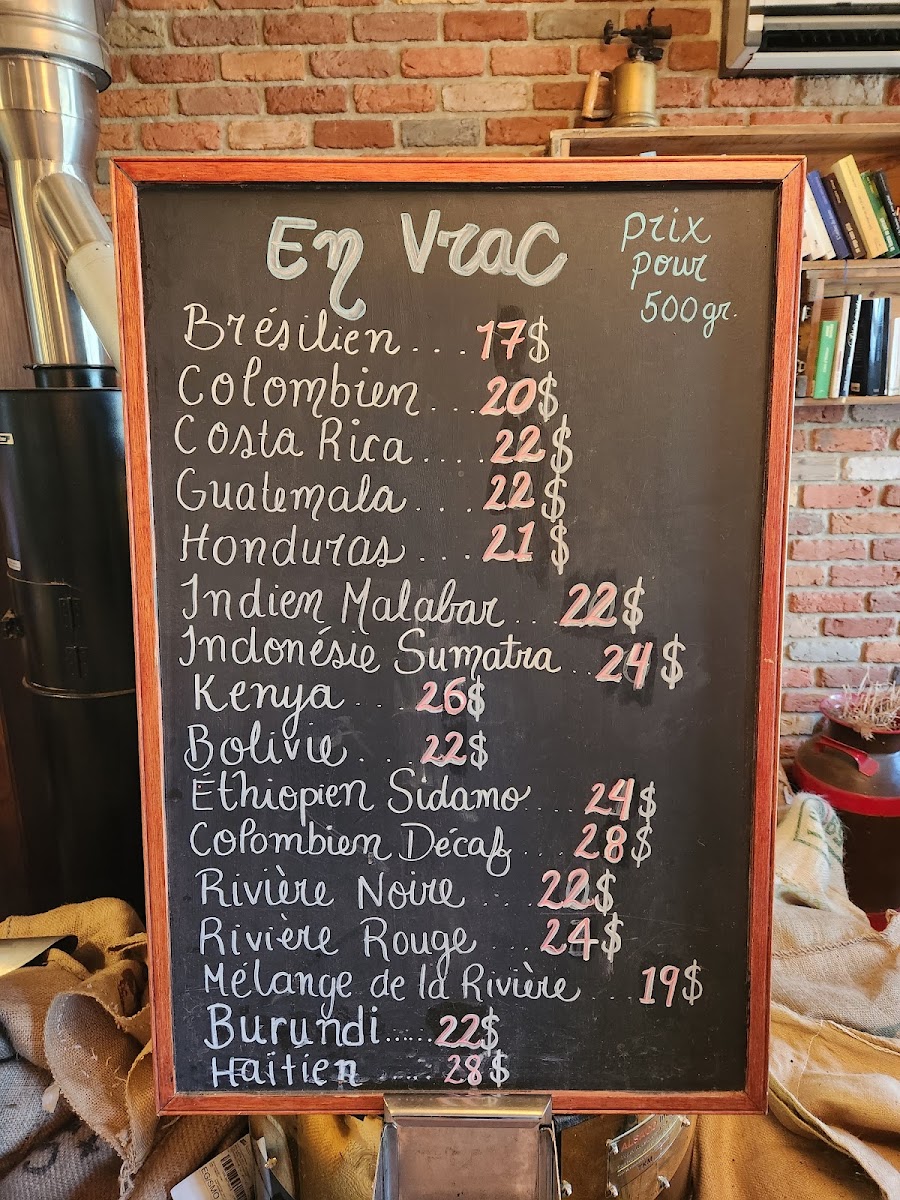 En Vrac
prix
pour
500gr.
Brésilien....17$
Colombien...20$
Costa Rica....22$
Guatemala...22$
Honduras...21$
Indien Malabar...22$
Indonésie Sumatra..24$
Kenya...26$
Bolivie...22$
Éthiopien Sidamo...24$
Colombien Décaf....28$
Rivière Noire...22$
Rivière Rouge...24$
Mélange de la Rivière...19$
Burundi......22$
Haïtien......28$